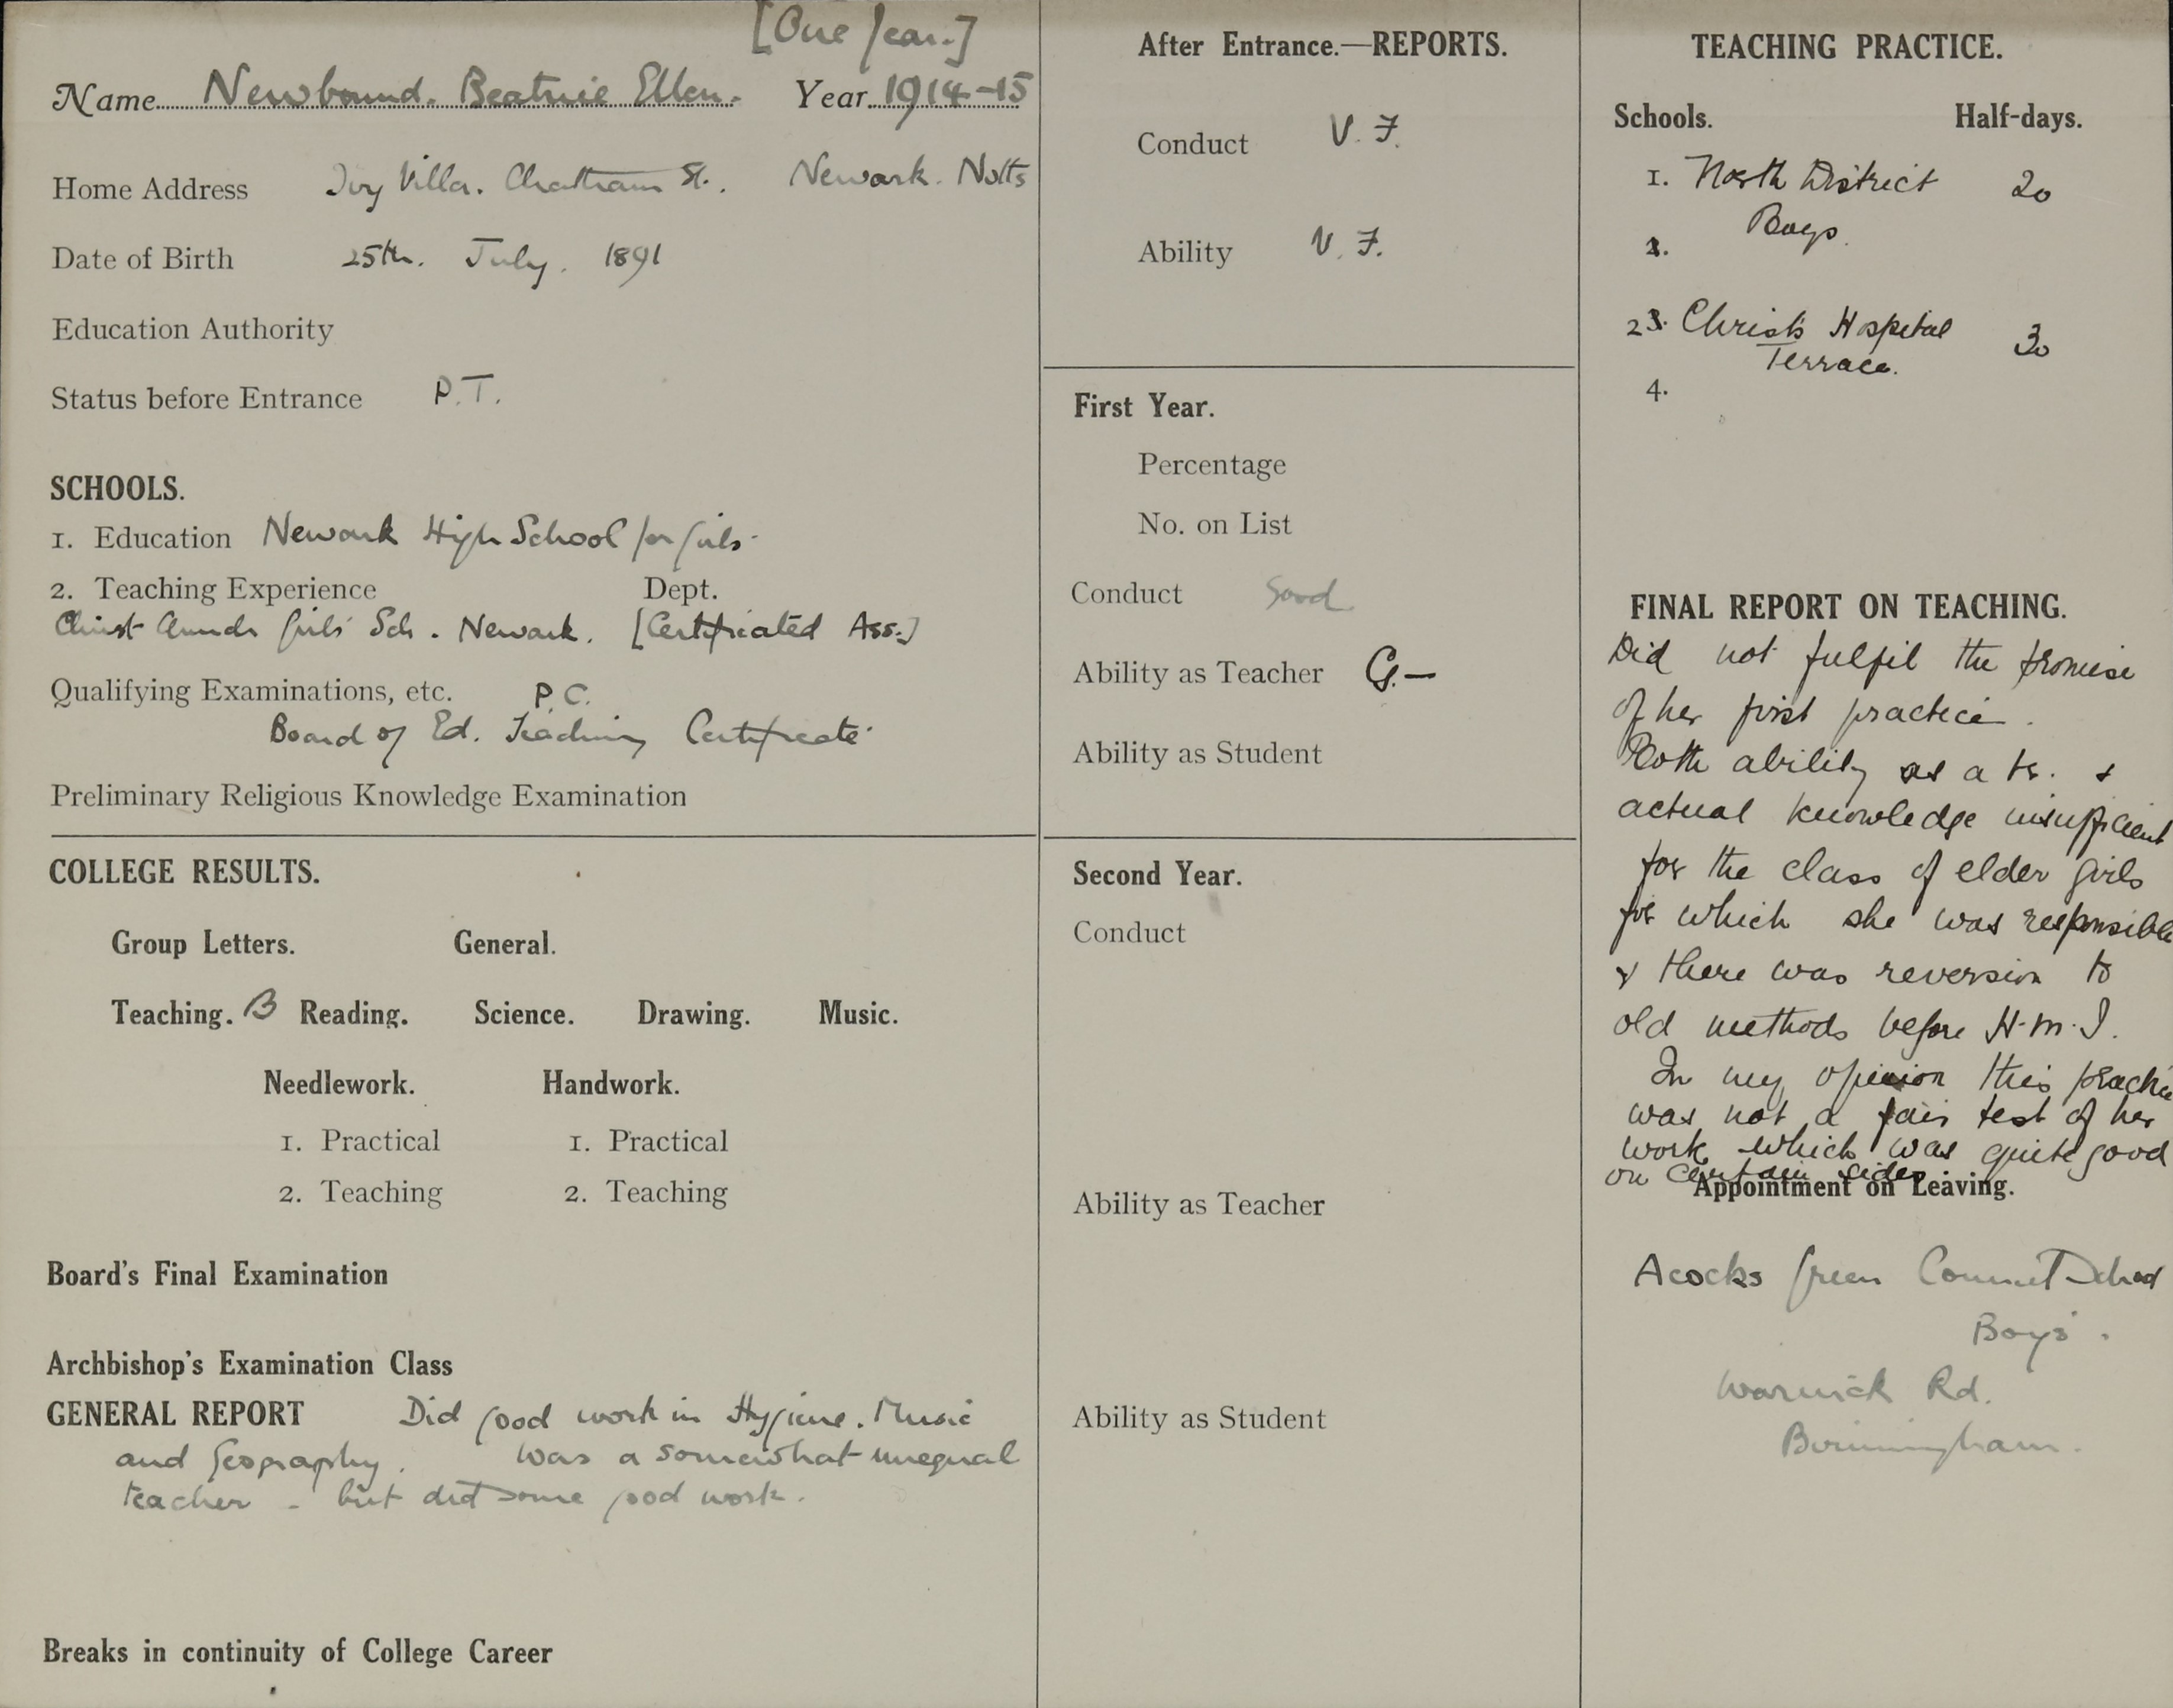 [One Year.]
Name Newbound. Beatrice Ellen. Year 1914-15
Home Address Ivy Villa. Chatham St. Newark. Notts
Date of Birth 25th. July. 1891
Education Authority
Status before Entrance P.T.
SCHOOLS.
1. Education Newark High School for Girls.
2. Teaching Experience Dept.
Christ Church Girls' Sch. Newark. [Certificated Ass.]
Qualifying Examinations, etc. P.C.
Board of Ed. Teaching Certificate.
Preliminary Religious Knowledge Examination
COLLEGE RESULTS.
Group Letters. General.
Teaching. B Reading. Science. Drawing. Music.
Needlework. Handwork.
1. Practical 1. Practical
2. Teaching 2. Teaching
Board's Final Examination
Archbishop's Examination Class
GENERAL REPORT Did good work in Hygiene. Music
and Geography. Was a somewhat unequal
teacher - but did some good work.
Breaks in continuity of College Career
After Entrance.—REPORTS.
Conduct V.F.
Ability V.F.
First Year.
Percentage
No. on List
Conduct Good
Ability as Teacher G.-
Ability as Student
Second Year.
Conduct
Ability as Teacher
Ability as Student
TEACHING PRACTICE.
Schools. Half-days.
1. North District 20
Boys.
2.
2 3. Christ's Hospital 30
Terrace.
4.
FINAL REPORT ON TEACHING.
Did not fulfil the promise
of her first practice.
Both ability as a tr. &
actual knowledge insufficient
for the class of elder girls
for which she was responsible
& there was reversion to
old methods before H.M.I.
In my opinion this practice
was not a fair test of her
work which was quite good
on certain sides
Appointment on Leaving.
Acocks Green Council School
Boys'.
Warwick Rd.
Birmingham.